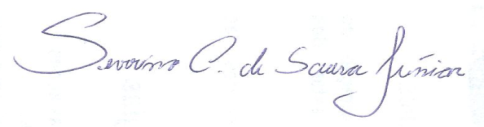 Severino C. de Sousa Júnior